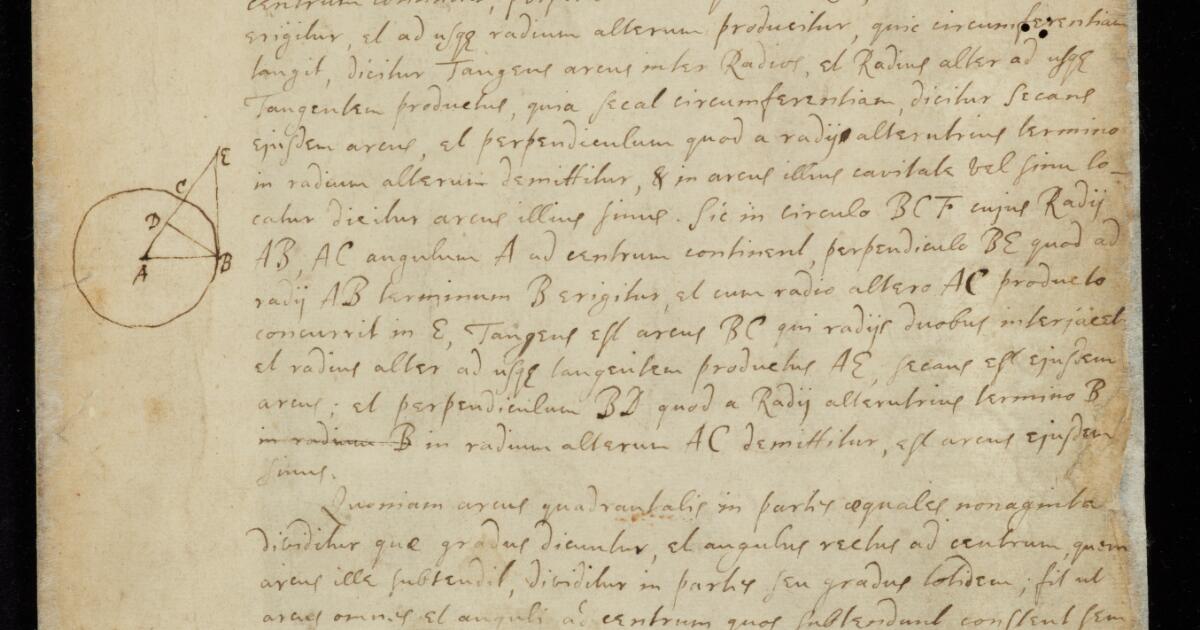 erigitur, et ad usqꝫ radium alterum producitur, quic circumferentiam
tangit, dicitur Tangens arcus inter Radios, et Radius alter ad usqꝫ
Tangentem productus, quia secat circumferentiam, dicitur Secans
ejusdem arcus, et perpendiculum quod a radij alterutrius termino
in radium alterum demittitur, & in arcus illius cavitate vel sinu lo-
catur dicitur arcus illius sinus. Sic in circulo BCF cujus Radij
AB, AC angulum A ad centrum continent, perpendiculo BE quod ad
radij AB terminum B erigitur, et cum radio altero AC producto
concurrit in E, Tangens est arcus BC qui radijs duobus interjacet
et radius alter ad usqꝫ tangentem productus AE, secans est ejusdem
arcus; et perpendiculum BD quod a Radij alterutrius termino B
in radium B in radium alterum AC demittitur, est arcus ejusdem
sinus.
Quoniam arcus quadrantalis in partes æquales nonaginta
dividitur quæ gradus dicuntur, et angulus rectus ad centrum, quem
arcus ille subtendit, dividitur in partes seu gradus totidem; fit ut
arcus omnes et anguli ad centrum quos subtendunt constent
E
C
D
A
B